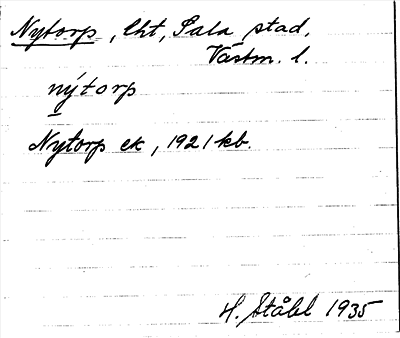 Nytorp, lht, Sala stad,
Västm. l.
nýtorp
Nytorp ek, 1921 kb
H. Ståhl 1935